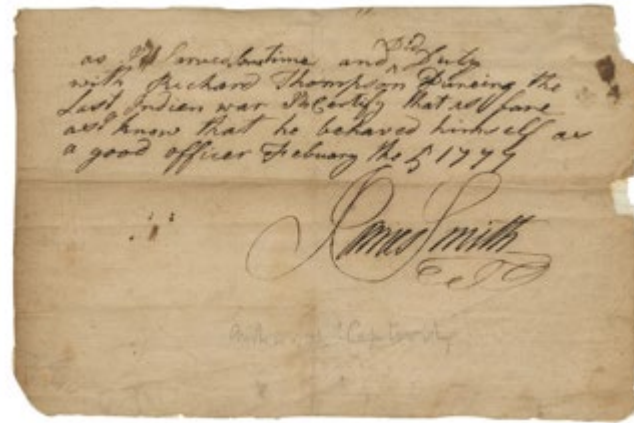 as I Served Sometime and Did Duty
with Richard Thompson Dureing the
Last Indien war I Certify that as fare
as I know that he behaved himself as
a good officer Febuary the 5 1777
James Smith
"Captivity